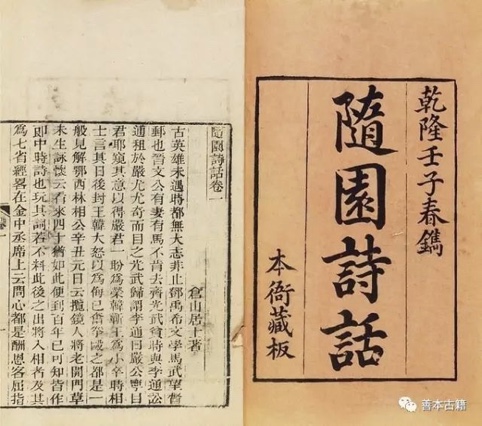 乾隆壬子春鐫
隨園詩話
本衙藏板
隨園詩話卷一
倉山居士著
古英雄未遇時都無大志非止鄧禹希文學馬武望督
郵也晉文公有妻有馬不肯去齊光武貧時與李通訟
逋租於嚴尤尤奇而目之光武歸謂李通曰嚴公寧目
君耶窺其意以得嚴君一盼為榮韓蘄王為小卒時相
士言其日後封王韓大怒以為侮己奮拳毆之都是一
般見解鄂西林相公辛丑元日云攬鏡人將老開門草
未生詠懷云看來四十猶如此便到百年已可知皆作
郎中時詩也玩其詞若不料此後之出將入相者及其
為七省經略在金中丞席上云問心都是酬恩客屈指
善本古籍